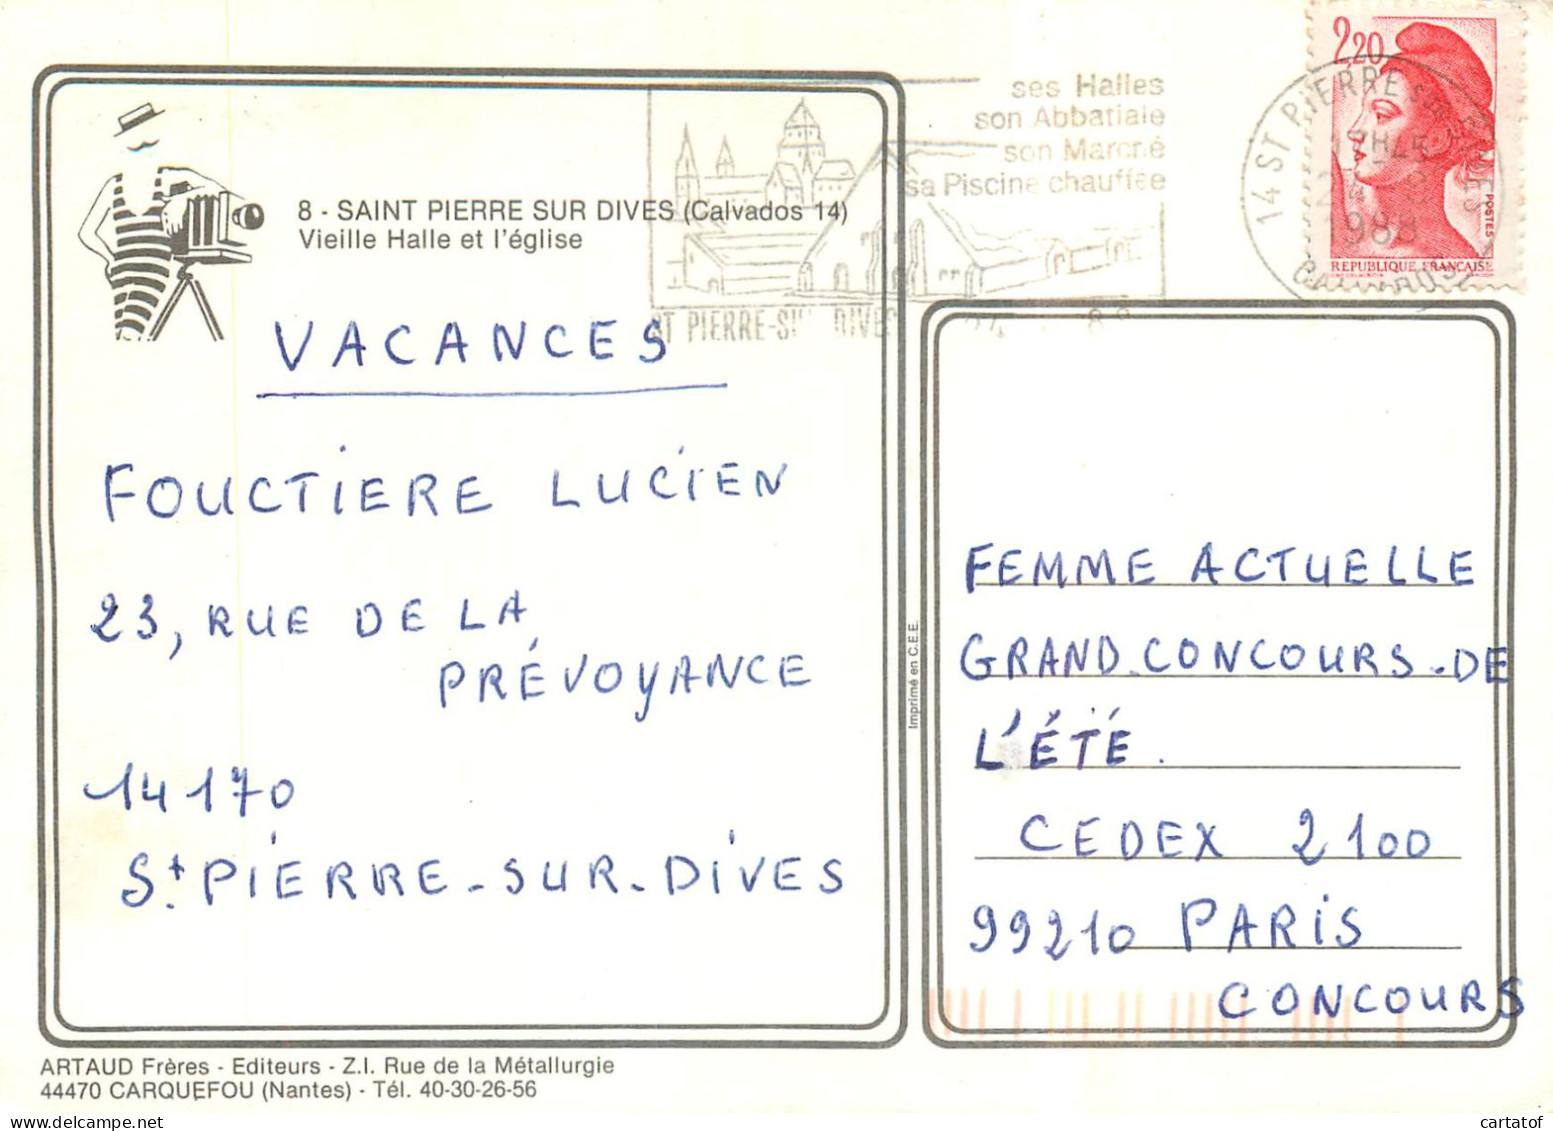 8 - SAINT PIERRE SUR DIVES (Calvados 14)
Vieille Halle et l'église
ses Halles
son Abbatiale
son Marché
sa Piscine chauffée
ST PIERRE-SUR DIVES
2,20
14 ST PIERRE SUR DIVES
17H45
1988
CALVADOS
POSTES
REPUBLIQUE FRANCAISE
VACANCES
FOUCTIERE LUCIEN
23, RUE DE LA
PRÉVOYANCE
14170
St. PIERRE-SUR-DIVES
Imprimé en C.E.E.
FEMME ACTUELLE
GRAND CONCOURS-DE
L'ÉTÉ.
CEDEX 2100
99210 PARIS
CONCOURS
ARTAUD Frères - Editeurs - Z.I. Rue de la Métallurgie
44470 CARQUEFOU (Nantes) - Tél. 40-30-26-56
cartatof